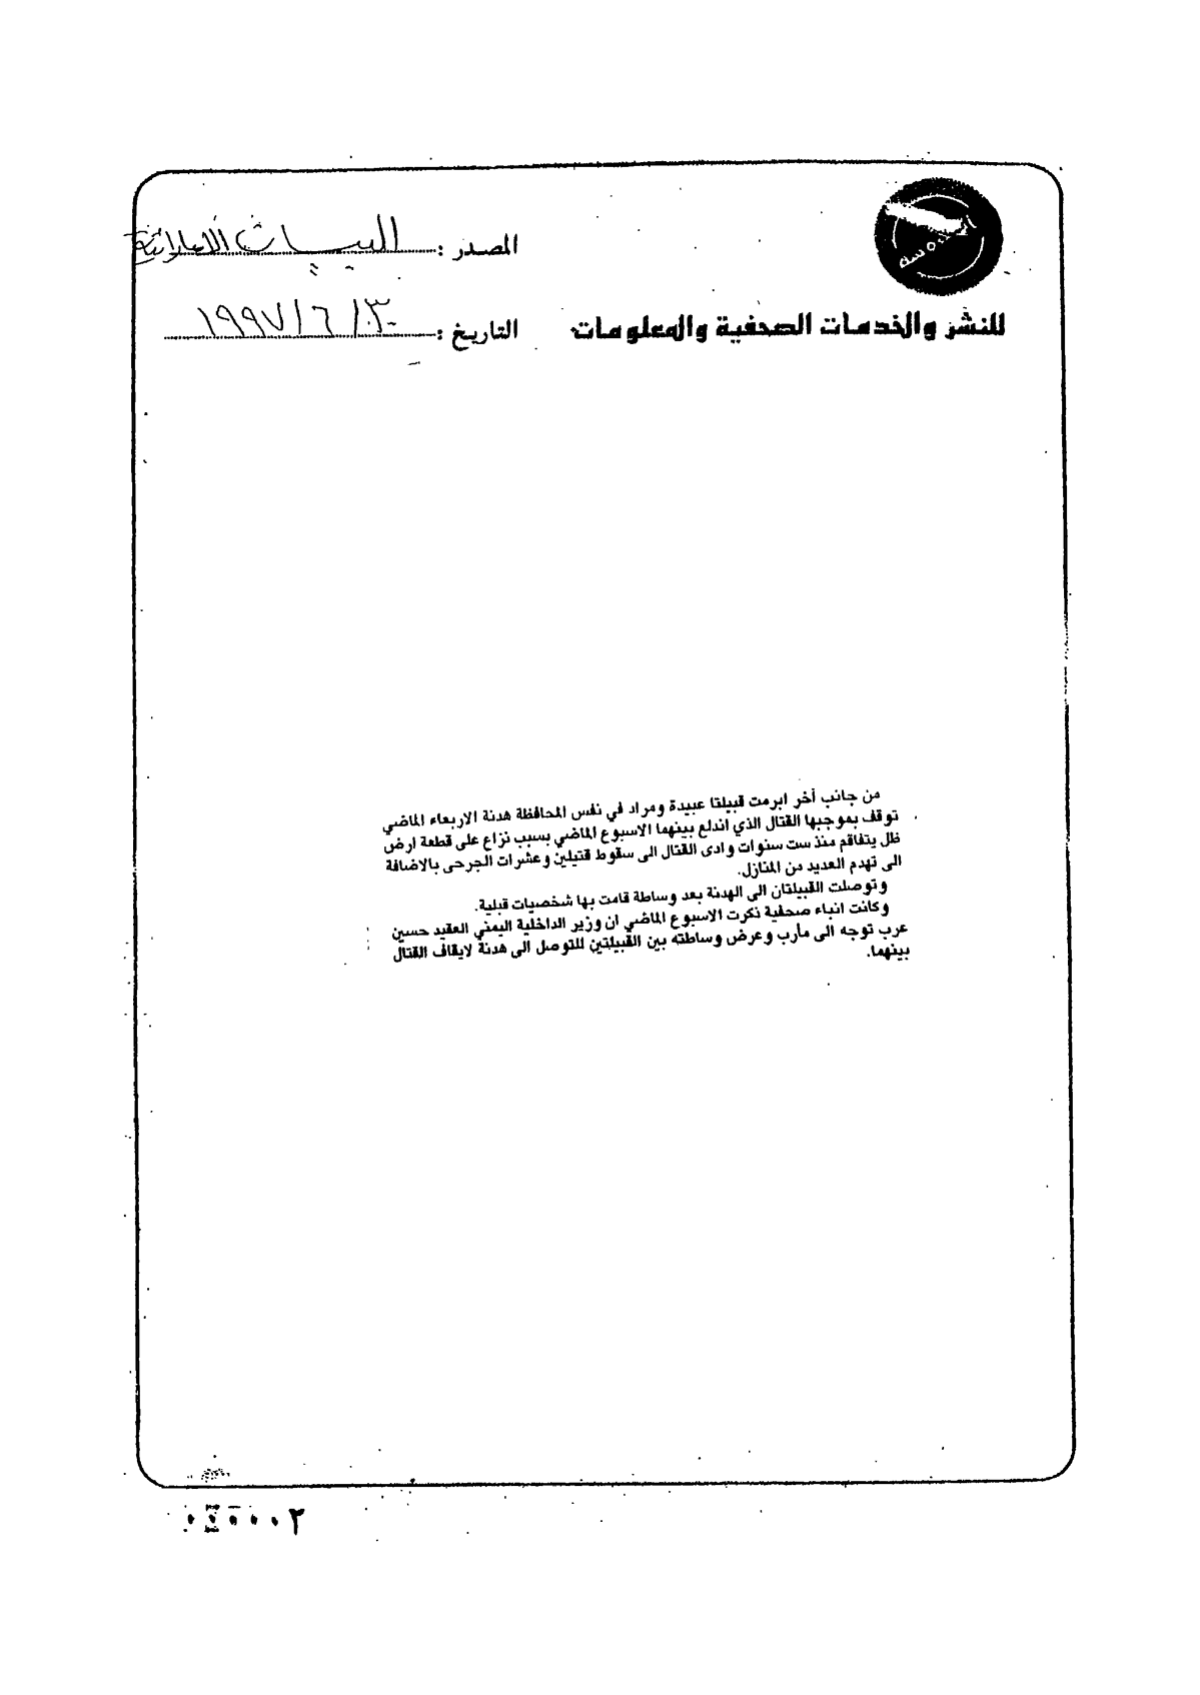 المصدر : البيان الاماراتية
للنشر والخدمات الصحفية والمعلومات
التاريخ : ٣٠ / ٦ / ١٩٩٧
من جانب أخر ابرمت قبيلتا عبيدة ومراد في نفس المحافظة هدنة الاربعاء الماضي
توقف بموجبها القتال الذي اندلع بينهما الاسبوع الماضي بسبب نزاع على قطعة ارض
ظل يتفاقم منذ ست سنوات وادى القتال الى سقوط قتيلين وعشرات الجرحى بالاضافة
الى تهدم العديد من المنازل.
وتوصلت القبيلتان الى الهدنة بعد وساطة قامت بها شخصيات قبلية.
وكانت انباء صحفية ذكرت الاسبوع الماضي ان وزير الداخلية اليمني العقيد حسين
عرب توجه الى مأرب وعرض وساطته بين القبيلتين للتوصل الى هدنة لايقاف القتال
بينهما.